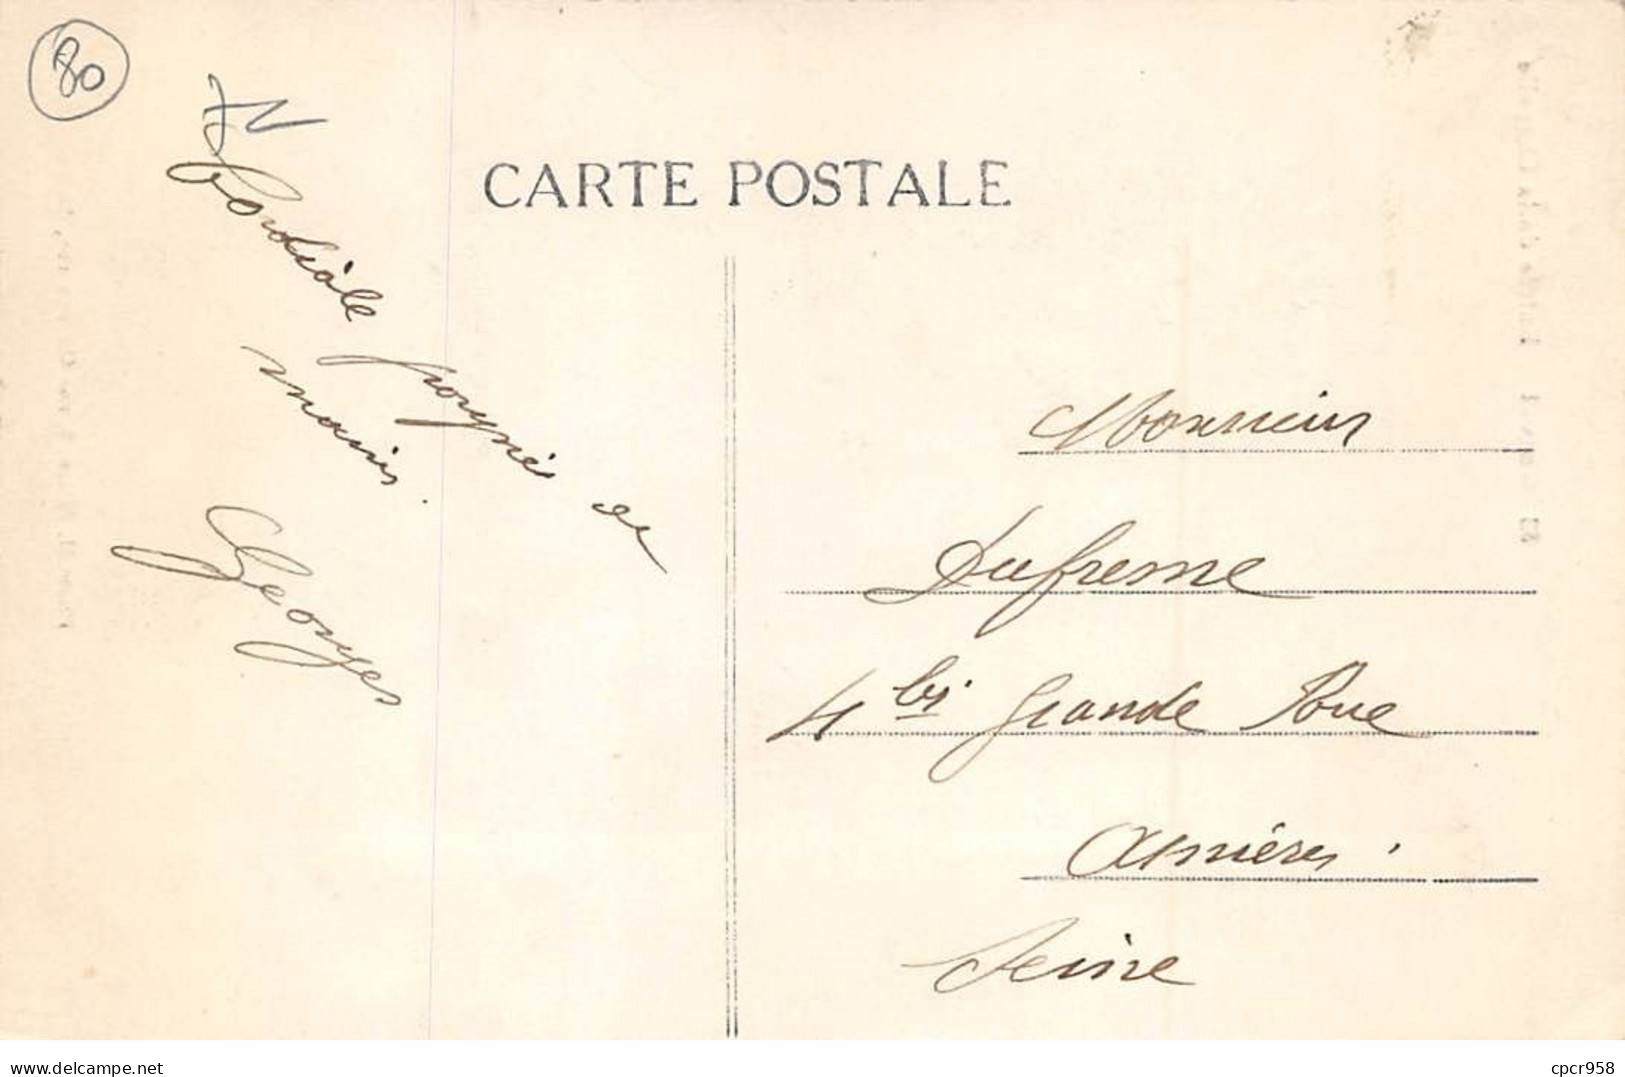 80
CARTE POSTALE
Cordiale poignée de
mains.
Georges
Monsieur
Dufresne
4 bis Grande Rue
Asnières.
Seine
delcampe.net
cpcr958